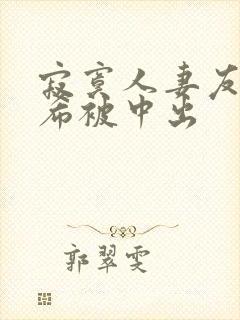 寂寞人妻友
希被中出
郭翠雯